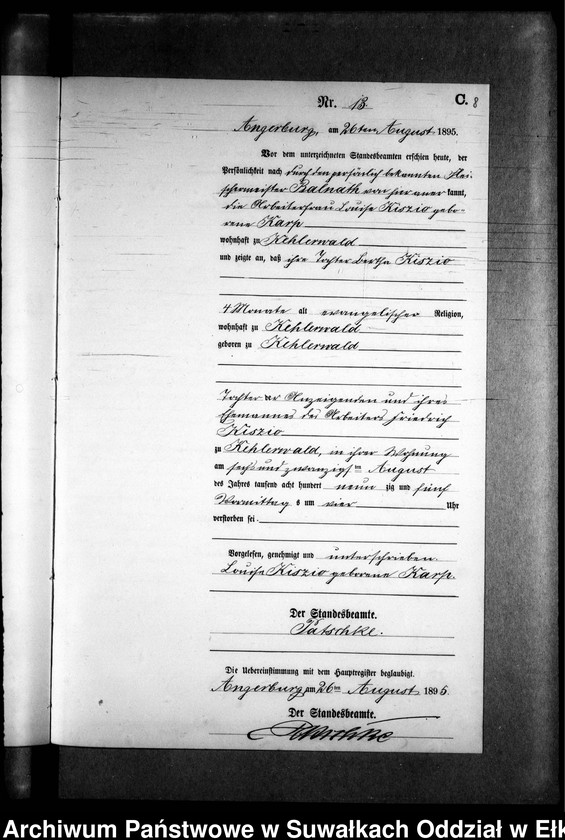 C. 8
Nr. 13.
Angerburg, am 26ten August 1895.
Vor dem unterzeichneten Standesbeamten erschien heute, der
Persönlichkeit nach durch den persönlich bekannten Flei-
schermeister Balnath von hier aner kannt,
die Arbeiterfrau Louise Kiszio gebo-
rene Karp
wohnhaft zu Kehlerwald
und zeigte an, daß ihre Tochter Bertha Kiszio
4 Monate alt evangelischer Religion,
wohnhaft zu Kehlerwald
geboren zu Kehlerwald
Tochter der Anzeigenden und ihres
Ehemannes des Arbeiters Friedrich
Kiszio
zu Kehlerwald, in ihrer Wohnung
am sechs und zwanzigsten August
des Jahres tausend acht hundert neun zig und fünf
Vormittag s um vier Uhr
verstorben sei.
Vorgelesen, genehmigt und unterschrieben.
Louise Kiszio geborene Karp.
Der Standesbeamte.
Patschke.
Die Uebereinstimmung mit dem Hauptregister beglaubigt.
Angerburg, am 26ten August 1895.
Der Standesbeamte.
Patschke
Archiwum Państwowe w Suwałkach Oddział w Ełk